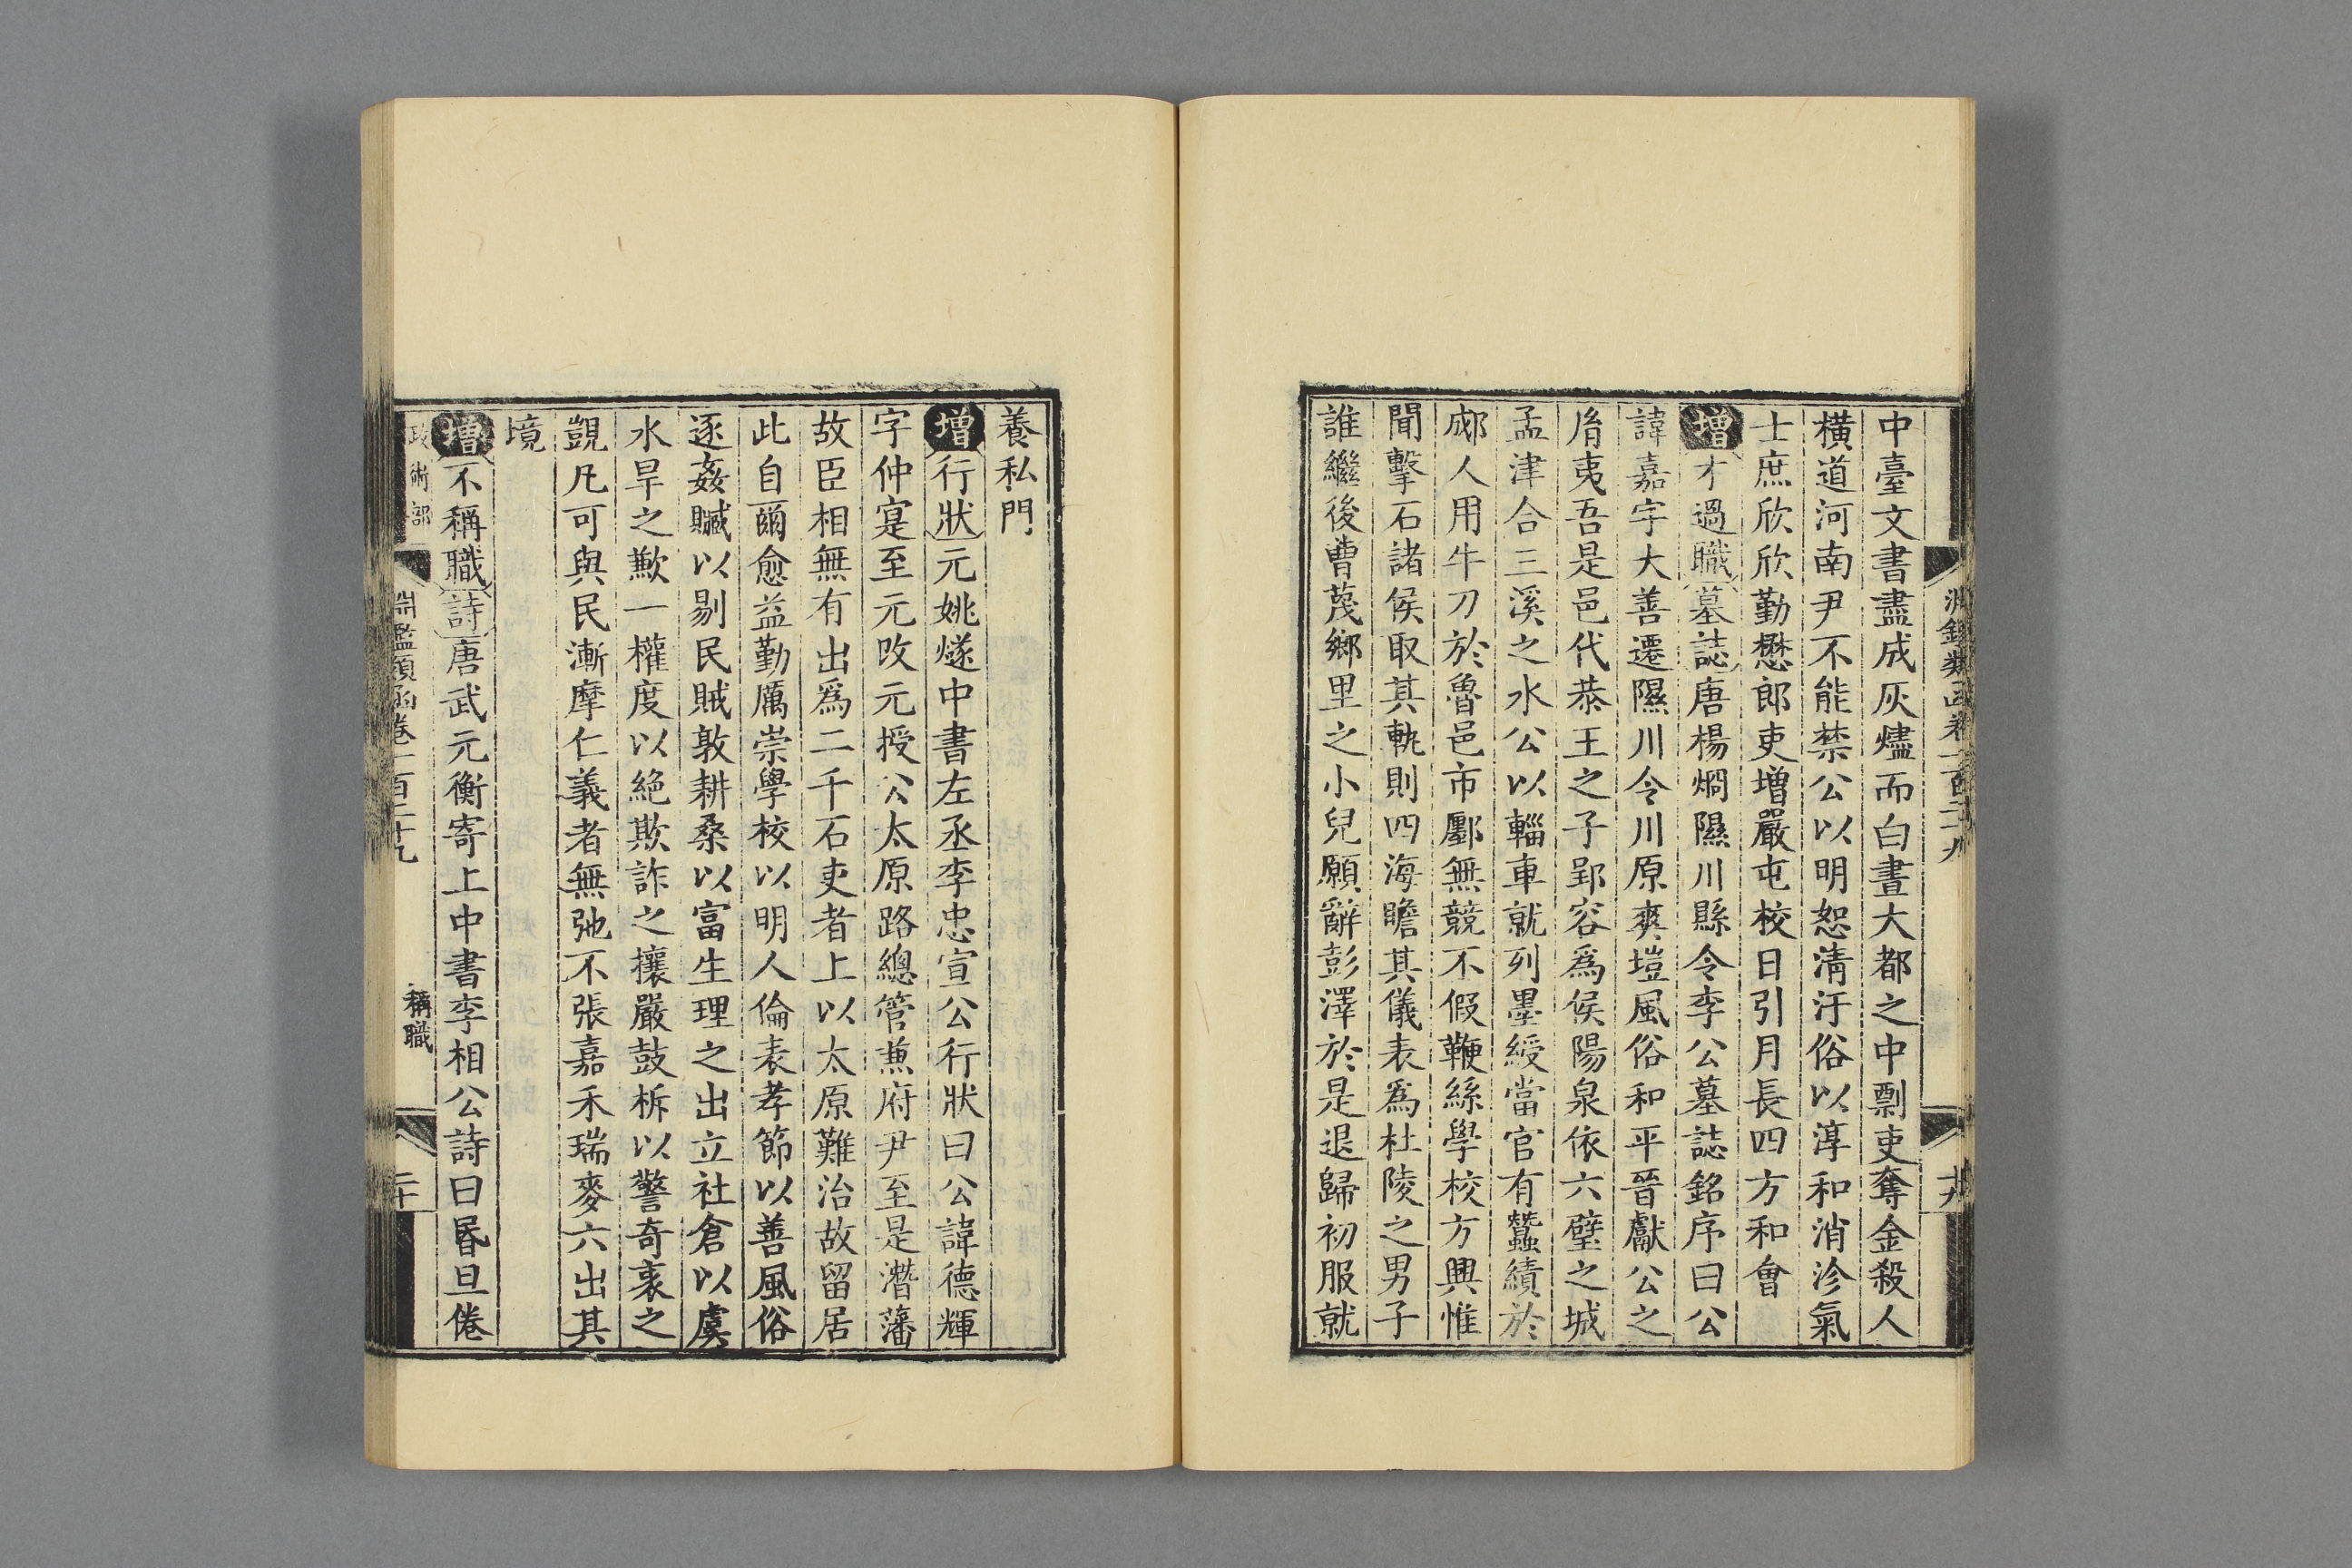 中臺文書盡成灰燼而白晝大都之中剽吏奪金殺人
橫道河南尹不能禁公以明恕淸汙俗以淳和消沴氣
士庶欣欣勤懋郎吏增嚴屯校日引月長四方和會
增才過職墓誌唐楊烱隰川縣令李公墓誌銘序曰公
諱嘉字大善遷隰川令川原爽塏風俗和平晉獻公之
胤夷吾是邑代恭王之子郢容爲侯陽泉依六壁之城
孟津合三溪之水公以輜車就列墨綬當官有蠶績於
郕人用牛刀於魯邑市鄽無競不假鞭絲學校方興惟
聞擊石諸侯取其軌則四海瞻其儀表爲杜陵之男子
誰繼後曹茂鄉里之小兒願辭彭澤於是退歸初服就
養私門
增行狀元姚燧中書左丞李忠宣公行狀曰公諱德輝
字仲寔至元改元授公太原路總管兼府尹至是濳藩
故臣相無有出爲二千石吏者上以太原難治故留居
此自爾愈益勤厲崇學校以明人倫表孝節以善風俗
逐姦贓以剔民賊敦耕桑以富生理之出立社倉以虞
水旱之歉一權度以絶欺詐之攘嚴鼓柝以警奇袤之
覬凡可與民漸摩仁義者無弛不張嘉禾瑞麥六出其
境
增不稱職詩唐武元衡寄上中書李相公詩曰昬旦倦
政術部 淵鑑類函卷一百二十九 稱職 二十